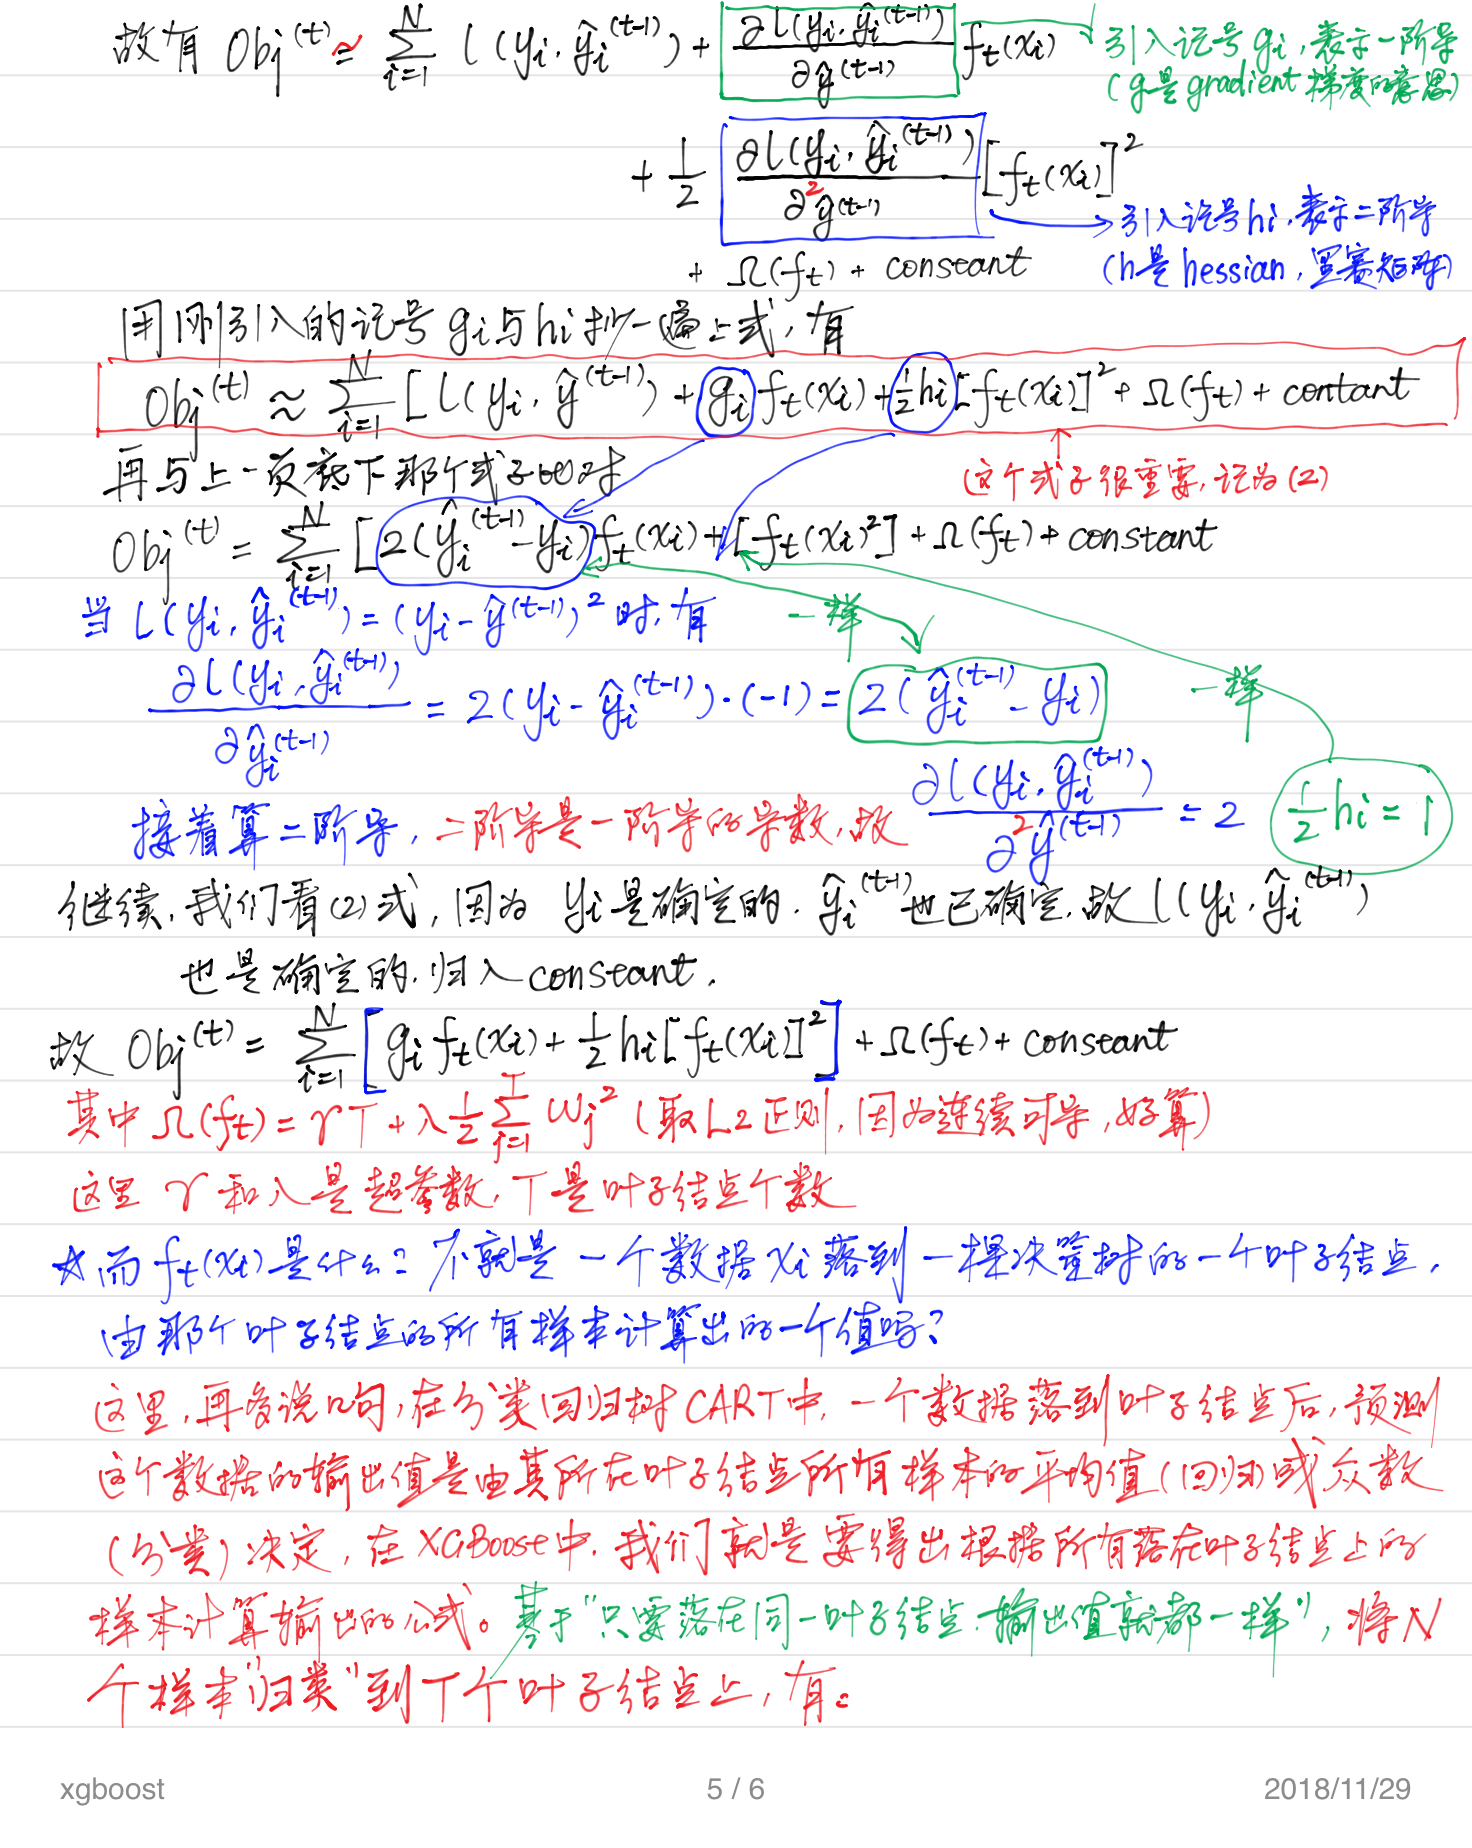 故有 Obj^(t) ≈ Σ_{i=1}^{N} l(y_i, ŷ_i^(t-1)) + ∂l(y_i, ŷ_i^(t-1))/∂ŷ^(t-1) f_t(x_i) 引入记号 g_i, 表示一阶导
(g是gradient 梯度的意思)
+ 1/2 ∂l(y_i, ŷ_i^(t-1))/∂²ŷ^(t-1) [f_t(x_i)]²
引入记号 h_i, 表示二阶导
+ Ω(f_t) + constant (h是 hessian, 黑塞矩阵)
用刚引入的记号 g_i 与 h_i 抄一遍上式, 有
Obj^(t) ≈ Σ_{i=1}^{N} [ l(y_i, ŷ^(t-1)) + g_i f_t(x_i) + 1/2 h_i [f_t(x_i)]² + Ω(f_t) + contant
再与上一页底下那个式子比对 (这个式子很重要, 记为 (2)
Obj^(t) = Σ_{i=1}^{N} [ 2(ŷ_i^(t-1) - y_i) f_t(x_i) + [f_t(x_i)²] + Ω(f_t) + constant
当 l(y_i, ŷ_i^(t-1)) = (y_i - ŷ^(t-1))² 时, 有 一样
∂l(y_i, ŷ_i^(t-1))/∂ŷ_i^(t-1) = 2(y_i - ŷ_i^(t-1))·(-1) = 2(ŷ_i^(t-1) - y_i) 一样
接着算二阶导, 二阶导是一阶导的导数, 故 ∂l(y_i, ŷ_i^(t-1))/∂²ŷ^(t-1) = 2 1/2 h_i = 1
继续, 我们看(2)式, 因为 y_i 是确定的, ŷ_i^(t-1) 也已确定, 故 l(y_i, ŷ_i^(t-1))
也是确定的, 归入 constant.
故 Obj^(t) = Σ_{i=1}^{N} [ g_i f_t(x_i) + 1/2 h_i [f_t(x_i)]² ] + Ω(f_t) + constant
其中 Ω(f_t) = γT + λ 1/2 Σ_{j=1}^{T} w_j² (取L2正则, 因为连续可导, 好算)
这里 γ 和 λ 是超参数, T 是叶子结点个数
☆ 而 f_t(x_i) 是什么? 不就是一个数据 x_i 落到一棵决策树的一个叶子结点,
由那个叶子结点的所有样本计算出的一个值吗?
这里, 再多说几句, 在分类回归树 CART 中, 一个数据落到叶子结点后, 预测
这个数据的输出值是由其所在叶子结点所有样本的平均值(回归)或众数
(分类)决定, 在 XGBoost 中, 我们就是要得出根据所有落在叶子结点上的
样本计算输出的公式。基于"只要落在同一叶子结点, 输出值就都一样", 将N
个样本"归类"到 T 个叶子结点上, 有。
xgboost 5 / 6 2018/11/29